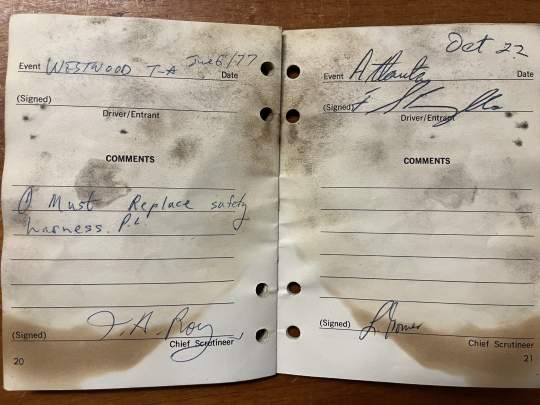 Event WESTWOOD T-A June 6/77 Date
(Signed)
Driver/Entrant
COMMENTS
① Must Replace safety
harness. P.L
(Signed) J.A. Roy
Chief Scrutineer
20
Oct 22
Event Atlanta Date
(Signed)
Driver/Entrant
COMMENTS
(Signed)
Chief Scrutineer
21